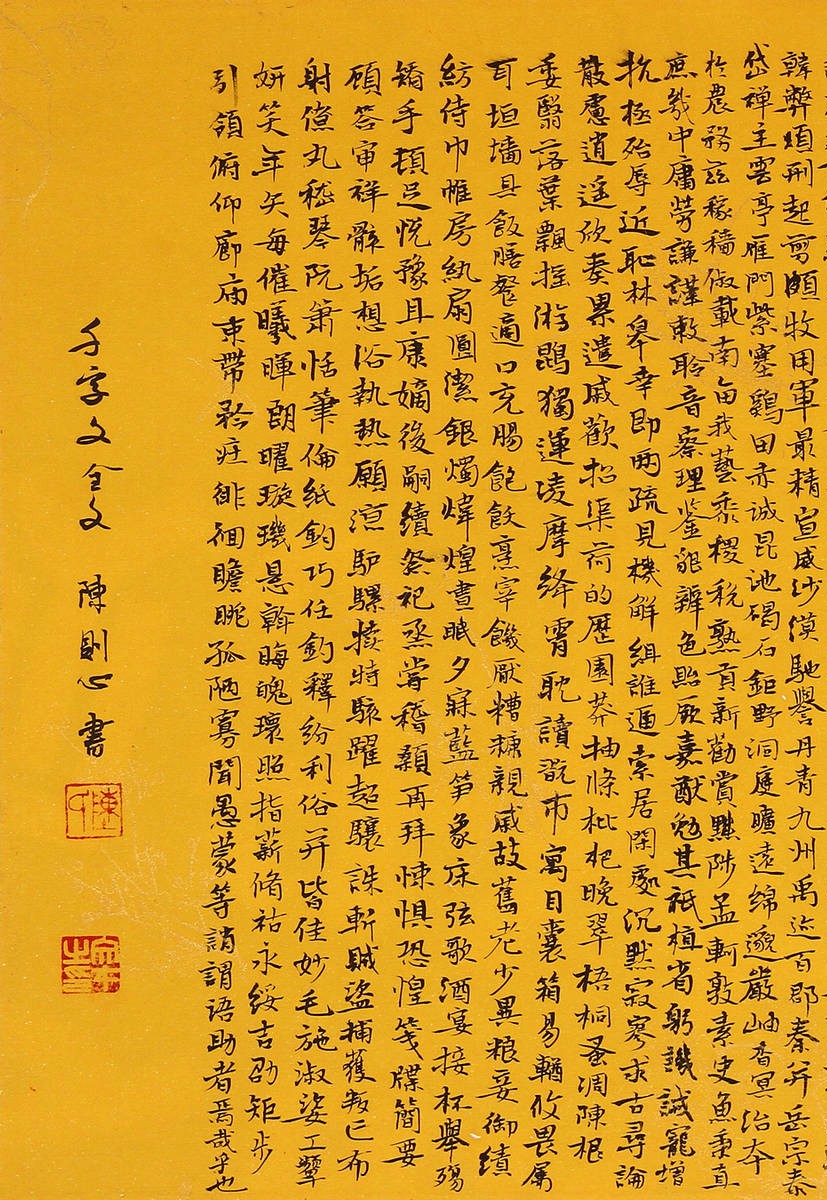 韓弊煩刑起翦頗牧用軍最精宣威沙漠馳譽丹青九州禹迹百郡秦并岳宗泰
岱禪主雲亭雁門紫塞鷄田赤誠昆池碣石鉅野洞庭曠遠綿邈嚴岫杳冥治本
於農務茲稼穡俶載南畝我藝黍稷税熟貢新勸賞黜陟孟軻敦素史魚秉直
庶幾中庸勞謙謹敕聆音察理鉴貌辨色貽厥嘉猷勉其祇植省躬譏誡寵增
抗極殆辱近恥林皋幸即两疏見機解組誰逼索居閑處沉默寂寥求古尋論
散慮逍遥欣奏累遣戚歡招渠荷的歷園莽抽條枇杷晚翠梧桐蚤凋陳根
委翳落葉飄摇游鵾獨運凌摩絳霄耽讀翫市寓目囊箱易輶攸畏属
耳垣墙具飯膳餐適口充腸飽飫烹宰饑厭糟糠親戚故舊老少異粮妾御績
紡侍巾帷房紈扇圓潔銀燭煒煌晝眠夕寐藍笋象床弦歌酒宴接杯舉殤
矯手頓足悦豫且康嫡後嗣續祭祀烝嘗稽顙再拜悚惧恐惶箋牒簡要
顧答审祥骸垢想浴執熱願涼馿騾犢特駭躍超驤誅斬賊盜捕獲叛亡布
射僚丸嵇琴阮箫恬筆倫紙鈞巧任釣釋紛利俗并皆佳妙毛施淑姿工顰
妍笑年矢每催曦暉朗曜璇璣悬斡晦魄環照指薪脩祜永綏吉劭矩步
引領俯仰廊庙束帶矜庄徘徊瞻眺孤陋寡聞愚蒙等誚謂语助者焉哉乎也
千字文全文 陳則心書